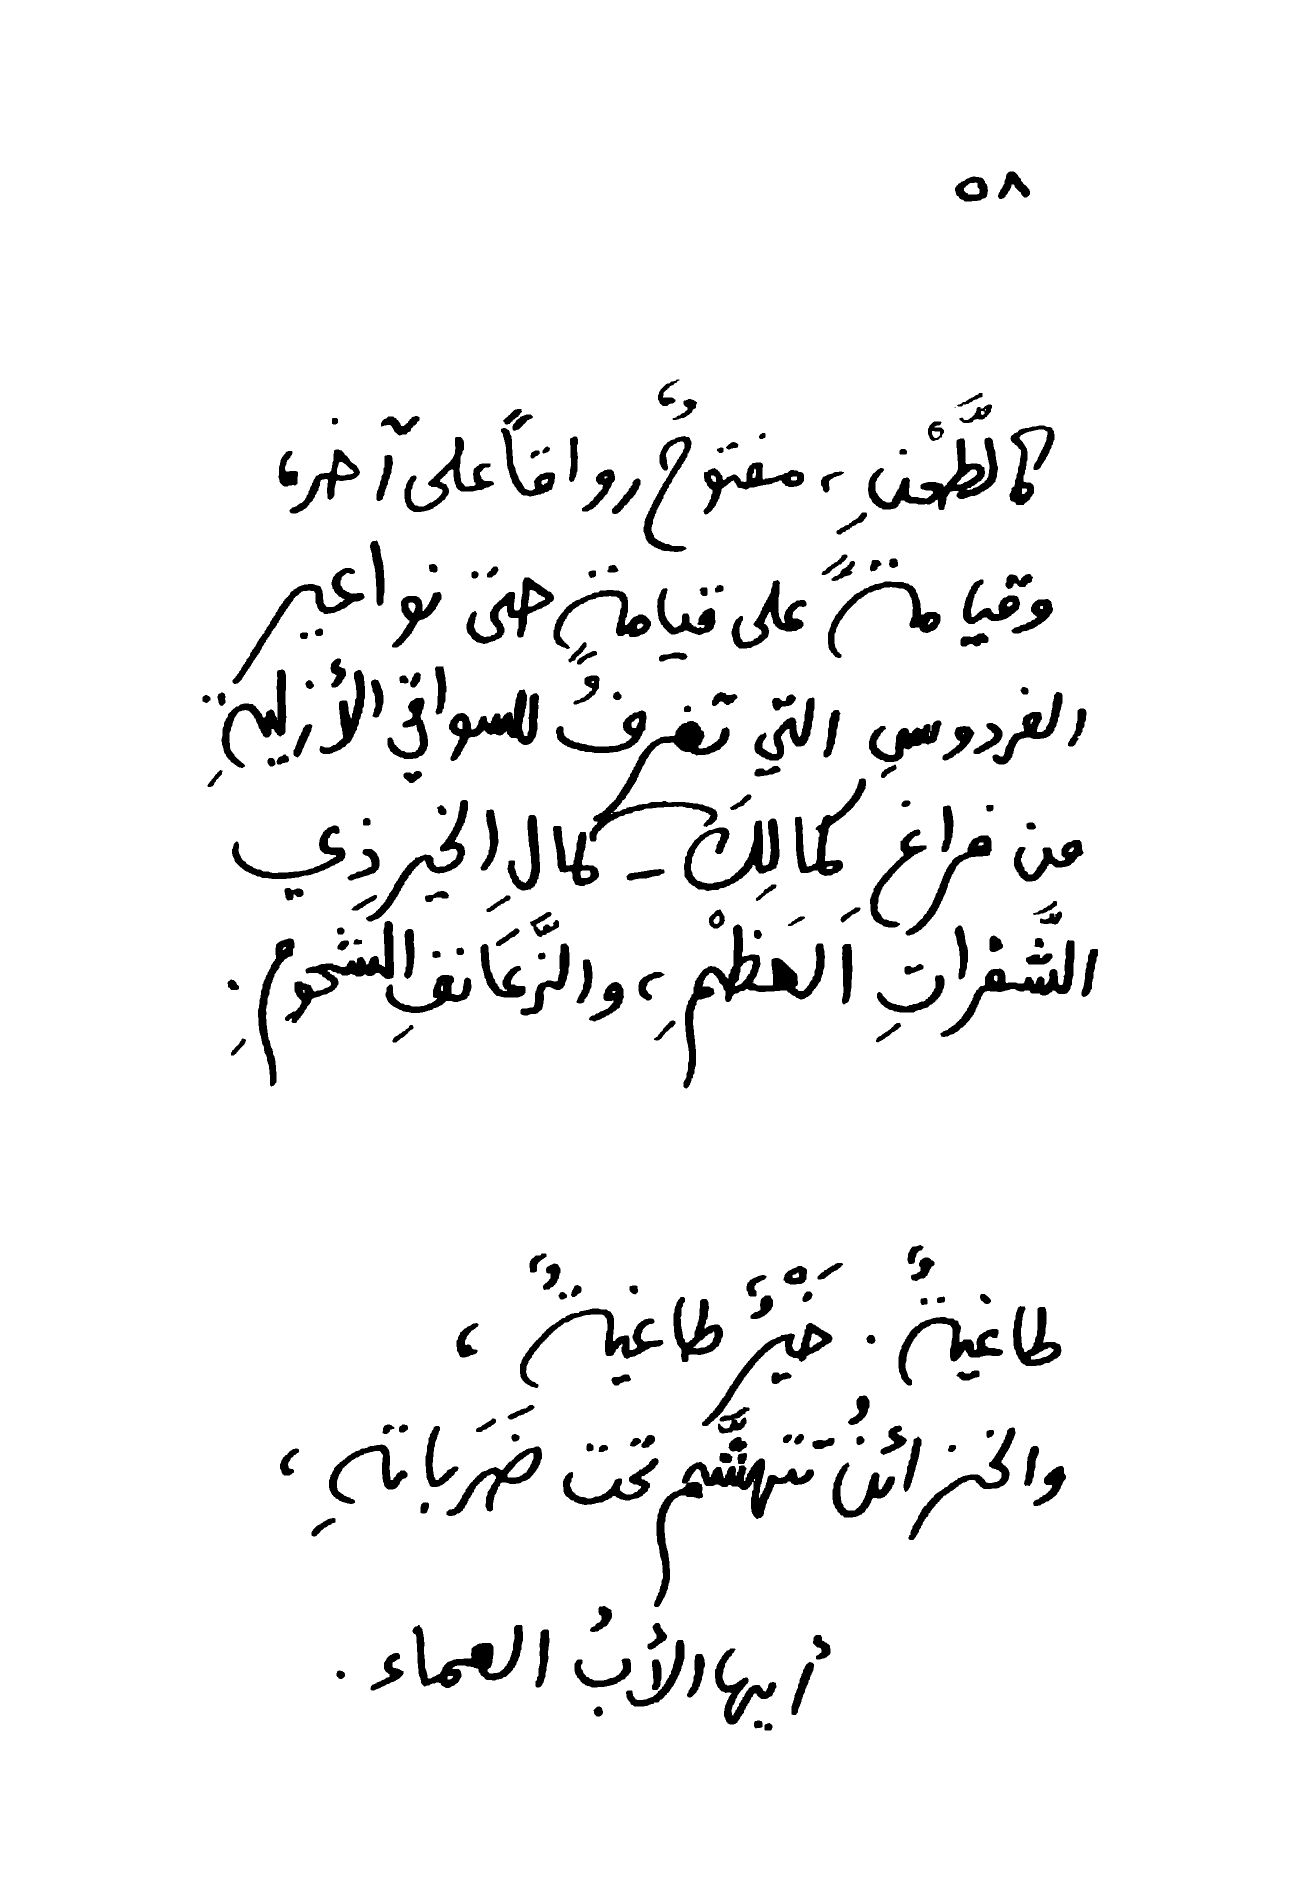 ٥٨
كالطَّحْنِ، مفتوحٌ رواقاً على آخر،
وقيامةً على قيامةٍ حتى نواعير
الفردوسِ التي تغرفُ للسواقي الأزليةِ
من فراغ كمالِكَ – كمالِ الخير ذِي
الشَّفراتِ العَظْمِ، والزَّعَانفِ الشحومِ.
طاغيةٌ. خَيْرٌ طاغيةٌ،
والخزائنُ تتهشَّم تحت ضَرَباتهِ،
أيها الأبُ العماء.